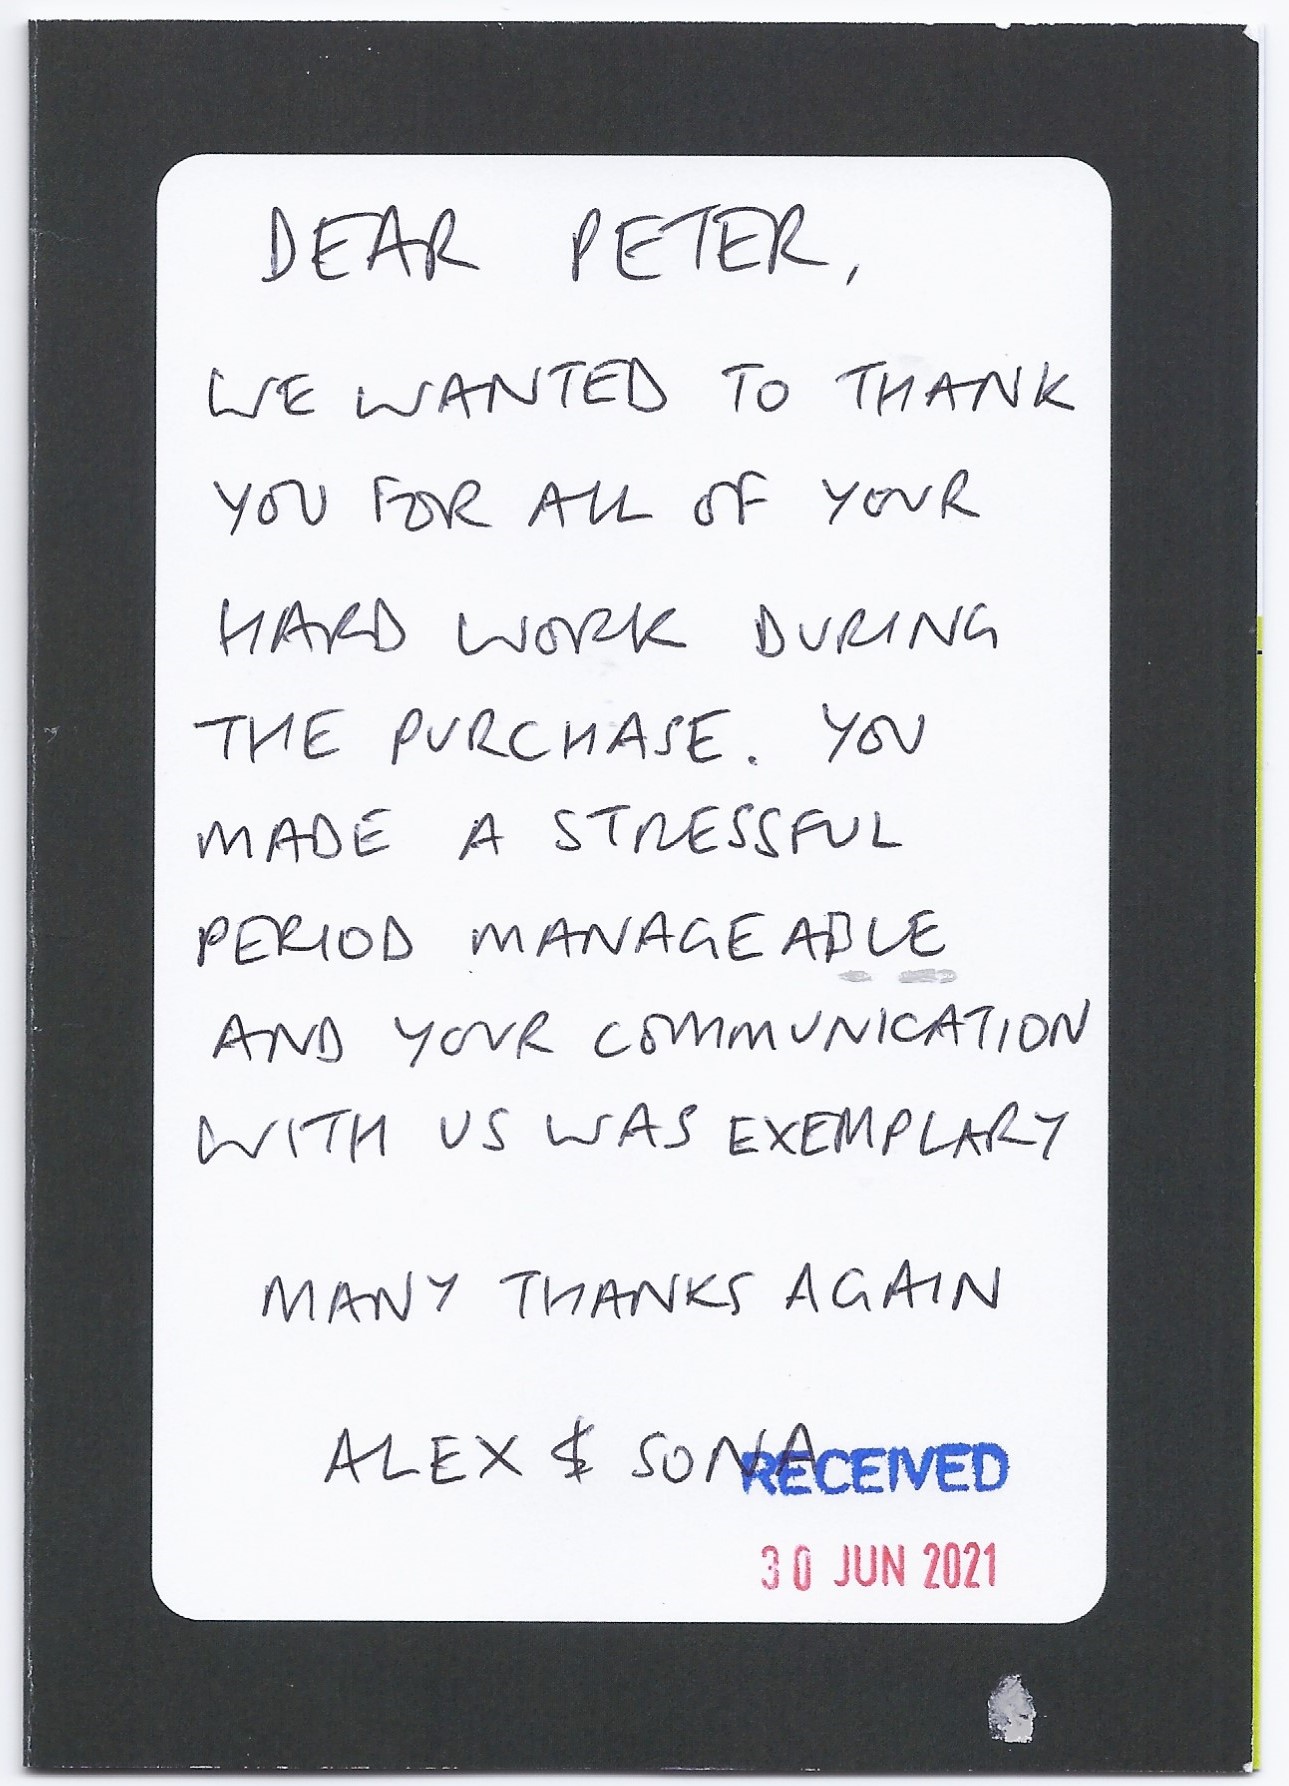 DEAR PETER,
WE WANTED TO THANK
YOU FOR ALL OF YOUR
HARD WORK DURING
THE PURCHASE. YOU
MADE A STRESSFUL
PERIOD MANAGEABLE
AND YOUR COMMUNICATION
WITH US WAS EXEMPLARY
MANY THANKS AGAIN
ALEX & SONA
RECEIVED
30 JUN 2021